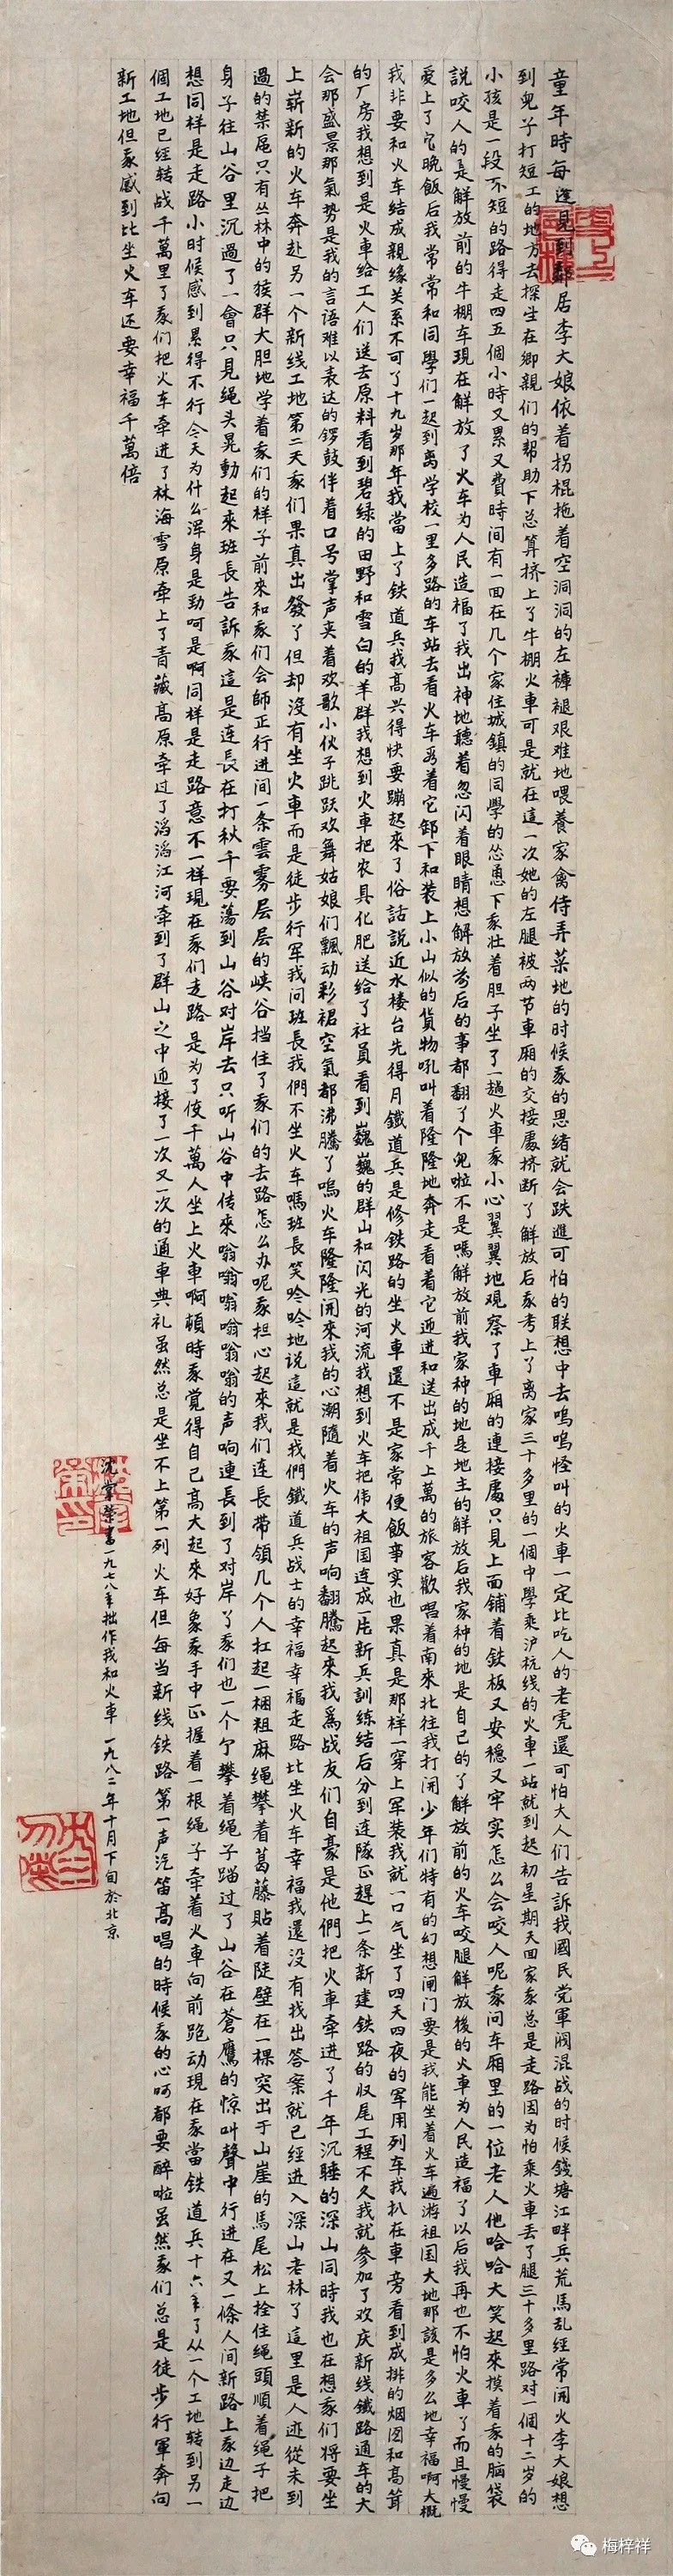 童年時每逢見到鄰居李大娘依着拐棍拖着空洞洞的左褲褪艰难地喂養家禽侍弄菜地的时候我的思绪就会跌進可怕的联想中去嗚嗚怪叫的火車一定比吃人的老虎還可怕大人们告訴我國民党軍阀混战的时候錢塘江畔兵荒馬乱经常闹火李大娘想
到兒子打短工的地方去探望在鄉親们的帮助下总算挤上了牛棚火車可是就在這一次她的左腿被两节車厢的交接處挤断了解放后我考上了离家三十多里的一個中學乘沪杭线的火車一站就到起初星期天回家我总是走路因为怕乘火車丢了腿三十多里路对一個十二岁的
小孩是一段不短的路得走四五個小時又累又費時间有一回在几个家住城鎮的同學的怂恿下我壮着胆子坐了一趟火車我小心翼翼地观察了車厢的連接處只見上面铺着鉄板又安穩又牢实怎么会咬人呢我问车厢里的一位老人他哈哈大笑起來摸着我的脑袋
説咬人的是解放前的牛棚车現在解放了火车为人民造福了我出神地聽着忽闪着眼睛想解放前后的事都翻了个兒啦不是嗎解放前我家种的地是地主的解放后我家种的地是自己的了解放前的火车咬腿解放後的火車为人民造福了以后我再也不怕火車了而且慢慢
爱上了它晚飯后我常常和同學们一起到离学校一里多路的车站去看火车看着它卸下和装上小山似的貨物吼叫着隆隆地奔走看着它迎進和送出成千上萬的旅客歡唱着南來北往我打開少年们特有的幻想闸门要是我能坐着火车遍游祖国大地那該是多么地幸福啊大概
我非要和火车结成親缘关系不可了十九岁那年我當上了鉄道兵我高兴得快要蹦起來了俗話説近水楼台先得月鐵道兵是修鉄路的坐火車還不是家常便飯事实也果真是那样一穿上军装我就一口气坐了四天四夜的军用列车我扒在車旁看到成排的烟囱和高耸
的厂房我想到是火車给工人们送去原料看到碧绿的田野和雪白的羊群我想到火車把农具化肥送给了社員看到巍巍的群山和闪光的河流我想到火车把伟大祖国连成一片新兵訓练结后分到连隊正趕上一条新建鉄路的収尾工程不久我就參加了欢庆新线鐵路通车的大
会那盛景那氣势是我的言语难以表达的锣鼓伴着口号掌声夹着欢歌小伙子跳跃欢舞姑娘们飄动彩裙空氣都沸騰了嗚火车隆隆开來我的心潮隨着火车的声响翻騰起來我爲战友们自豪是他們把火車牽進了千年沉睡的深山同時我也在想我们将要坐
上崭新的火车奔赴另一个新线工地第二天我们果真出發了但却没有坐火車而是徒步行军我问班長我們不坐火车嗎班長笑吟吟地说這就是我們鐵道兵战士的幸福幸福走路比坐火车幸福我還没有找出答案就已經进入深山老林了這里是人迹從未到
過的禁区只有丛林中的猴群大胆地学着我们的样子前來和我们会師正行进间一条雲雾层层的峡谷挡住了我们的去路怎么办呢我担心起來我们连長带領几个人扛起一梱粗麻绳攀着葛藤貼着陡壁在一棵突出于山崖的馬尾松上拴住绳頭順着绳子把
身子往山谷里沉過了一會只見绳头晃動起來班長告訴我這是连長在打秋千要蕩到山谷对岸去只听山谷中传來嗡嗡嗡嗡嗡嗡的声响連長到了对岸了我们也一个个攀着绳子蹈过了山谷在蒼鹰的惊叫聲中行进在又一條人间新路上我边走边
想同样是走路小时候感到累得不行今天为什么浑身是劲呵是啊同样是走路意不一样現在我们走路是为了使千萬人坐上火車啊頓時我覚得自己高大起來好象我手中正握着一根绳子牵着火車向前跑动現在我當鉄道兵十六年了从一个工地转到另一
個工地已经转战千萬里了我们把火车牵进了林海雪原牵上了青藏高原牵过了滔滔江河牵到了群山之中迎接了一次又一次的通車典礼虽然总是坐不上第一列火车但每当新线鉄路第一声汽笛高唱的時候我的心呵都要醉啦虽然我们总是徒步行軍奔向
新工地但我感到比坐火车还要幸福千萬倍
沈掌荣書一九七八年拙作我和火車 一九八二年十月下旬於北京
梅梓祥